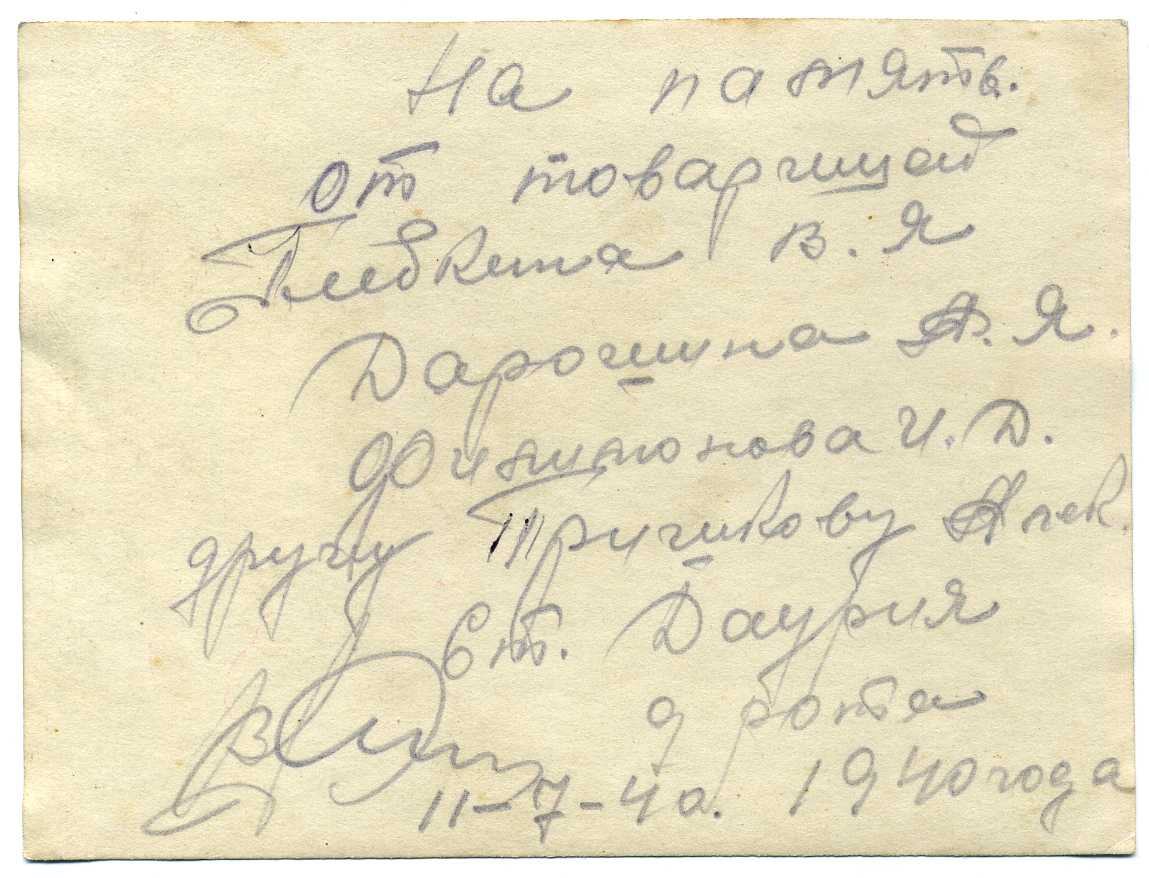 На память.
от товарищей
Глебкина В. Я
Дарошина А. Я.
Филимонова И. Д.
другу Тришкову Алек.
Ст. Даурия
9 рота
11-7-40. 1940 года